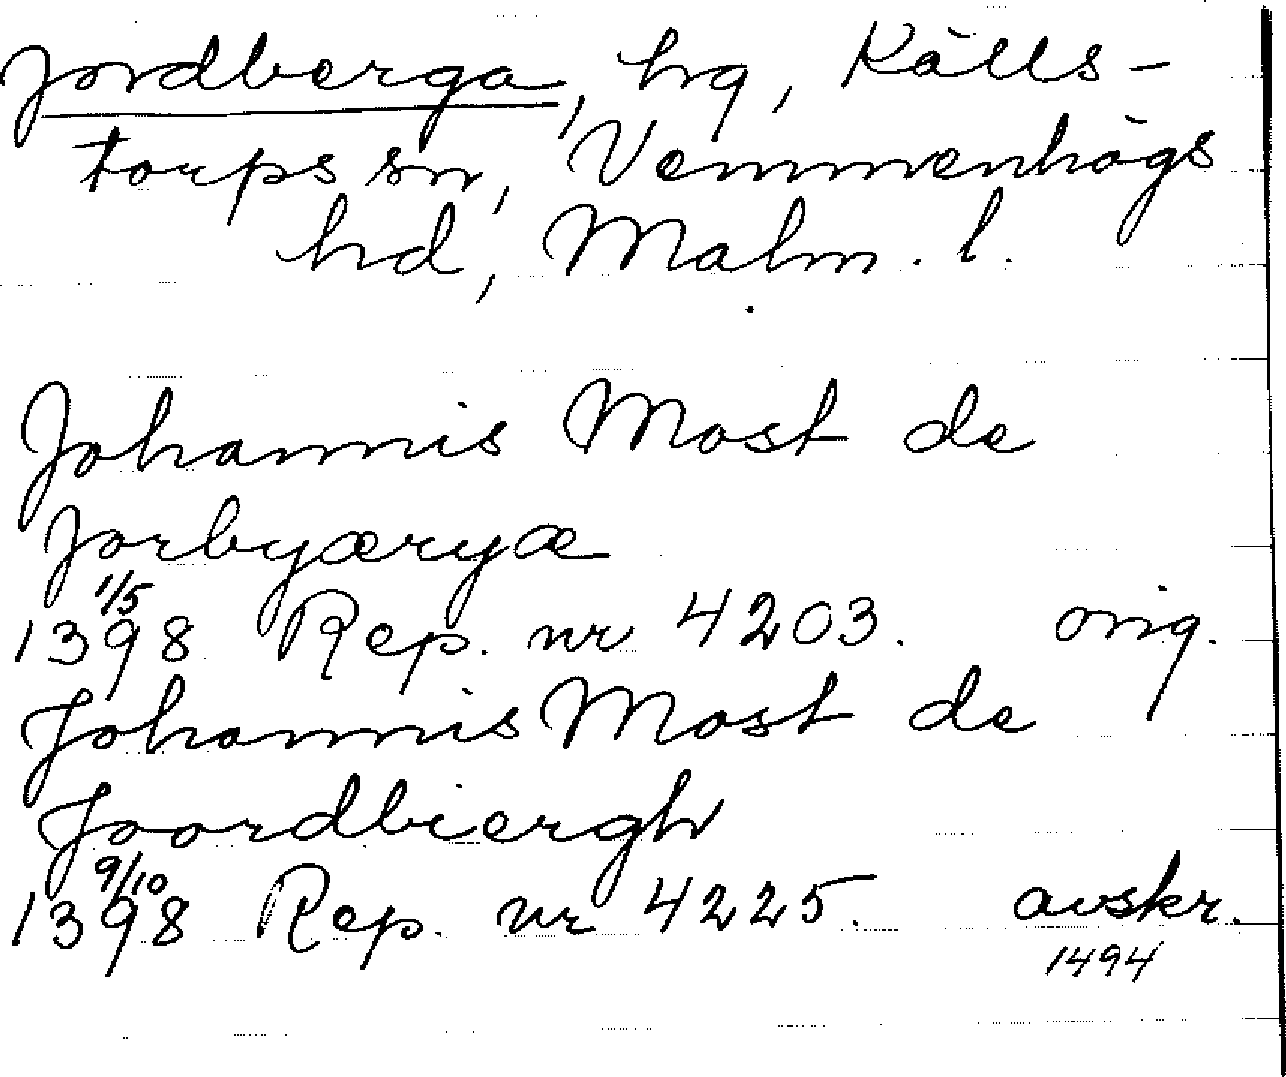 Jordberga, hg, Källs-
torps sn, Vemmenhögs
hd, Malm. l.
Johannis Most de
Jorbyæryæ
1/5
1398 Rep. nr 4203. orig.
Johannis Most de
Joordbiergh
9/10
1398 Rep. nr 4225. avskr.
1494